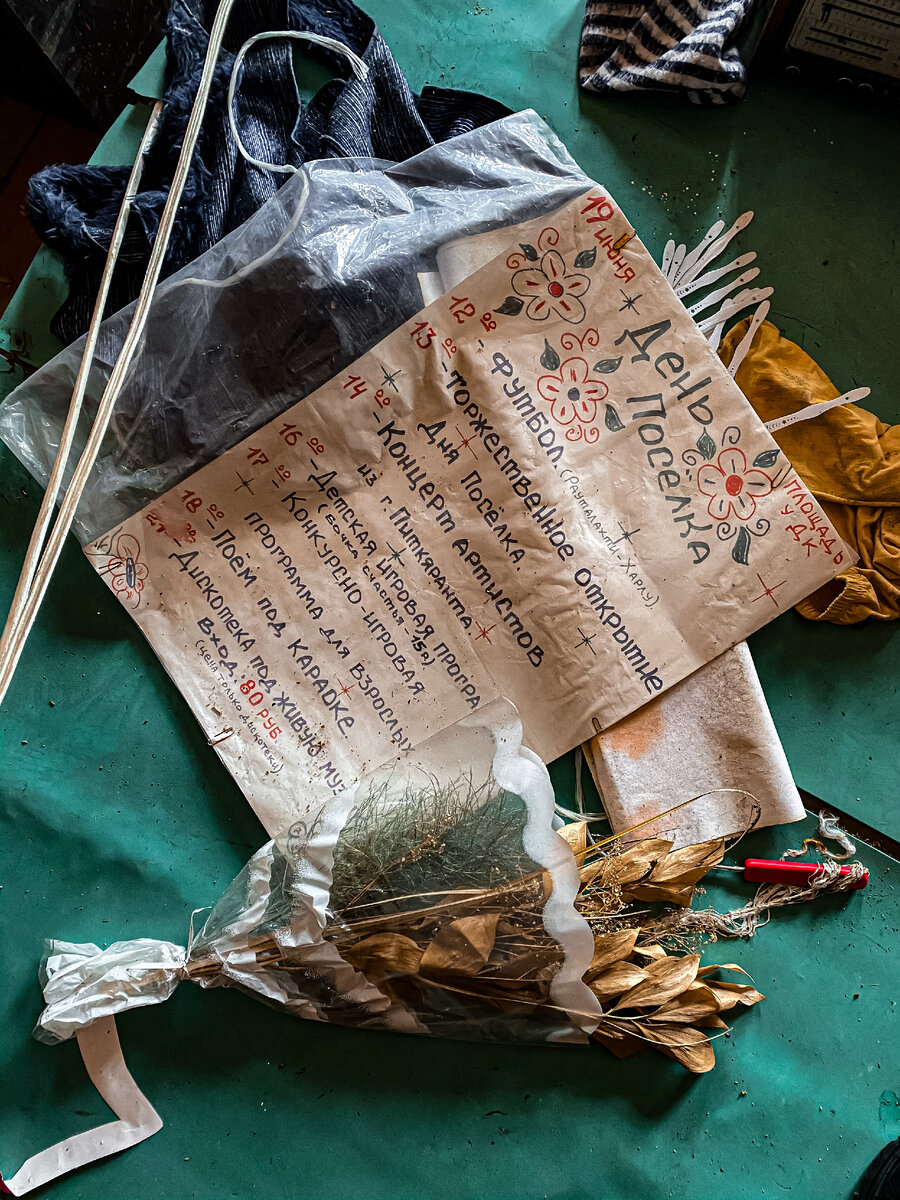 19 июня
День
Посёлка
Площадь
у ДК
12 00 - Футбол. (Рауталахти-Харлу)
13 00 - Торжественное открытие
Дня посёлка.
14 00 - Концерт артистов
из г. Питкяранта.
16 00 - Детская игровая програ
(Бочка счастья - 15р)
17 00 - Конкурсно-игровая
программа для взрослых
18 00 - Поём под караоке
- Дискотека под живую муз
Вход: 80 руб.
(цена только дискотеки)